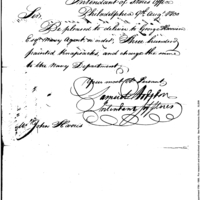 Intendant of Stores Office
Sir, Philadelphia 9th Aug. 1800
Be pleased to deliver to George Harrison
Esqr Navy Agent or order, Three hundred
painted Knapsacks, and charge the same
to the Navy Department.
Your most Ob Servant
Samuel Hodgdon
Intendant of Stores
Mr. John Harris